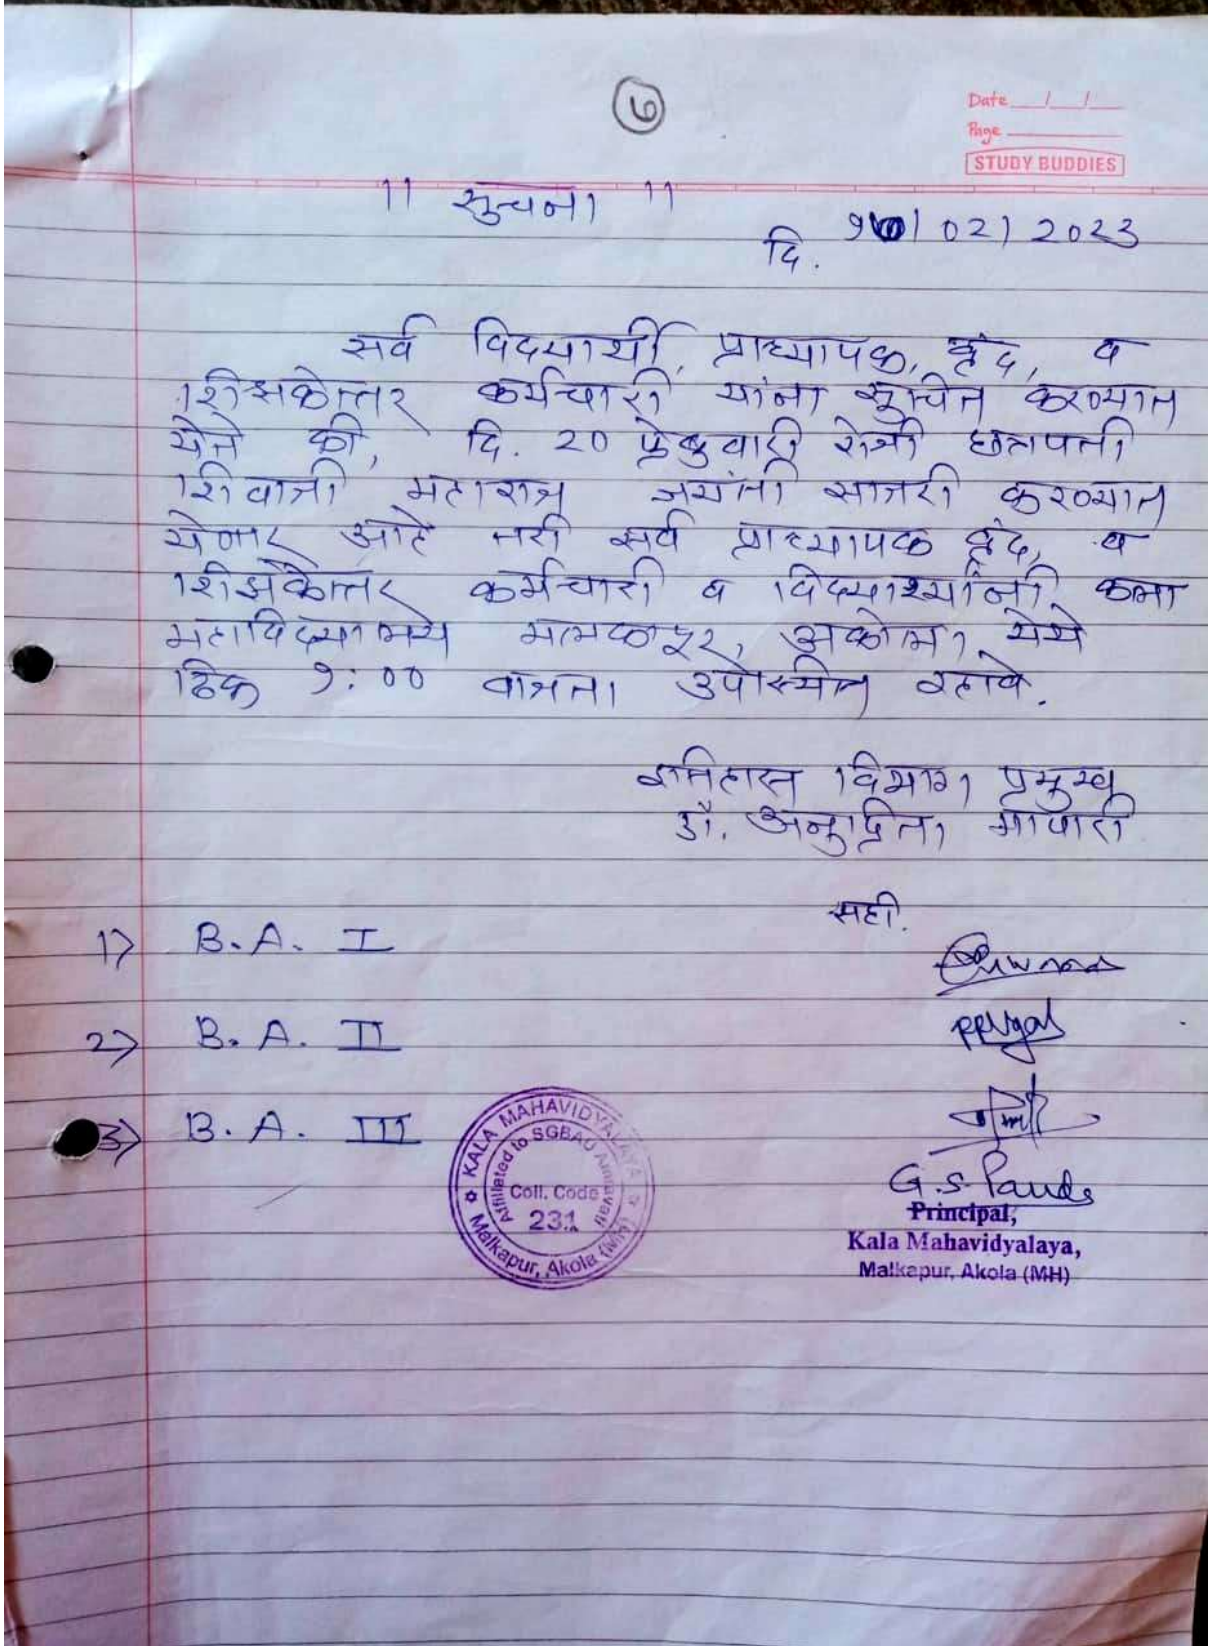 ७
Date / /
Page
STUDY BUDDIES
" सुचना "
दि. /02/2023
सर्व विद्यार्थी, प्राध्यापक, वृंद, व
शिक्षकेत्तर कर्मचारी यांना सूचित करण्यात
येते की, दि. 20 फेब्रुवारी रोजी छत्रपती
शिवाजी महाराज जयंती साजरी करण्यात
येणार आहे तरी सर्व प्राध्यापक वृंद, व
शिक्षकेत्तर कर्मचारी व विद्यार्थ्यांनी कला
महाविद्यालय मलकापूर, अकोला येथे
ठिक 9:00 वाजता उपस्थित रहावे.
इतिहास विभाग प्रमुख
डॉ. मापारी
सही.
1) B.A. I
2) B.A. II
3) B.A. III
KALA MAHAVIDYALAYA
Malkapur, Akola (MH)
Affiliated to SGBAU Amravati
Coll. Code
231
Principal,
Kala Mahavidyalaya,
Malkapur, Akola (MH)